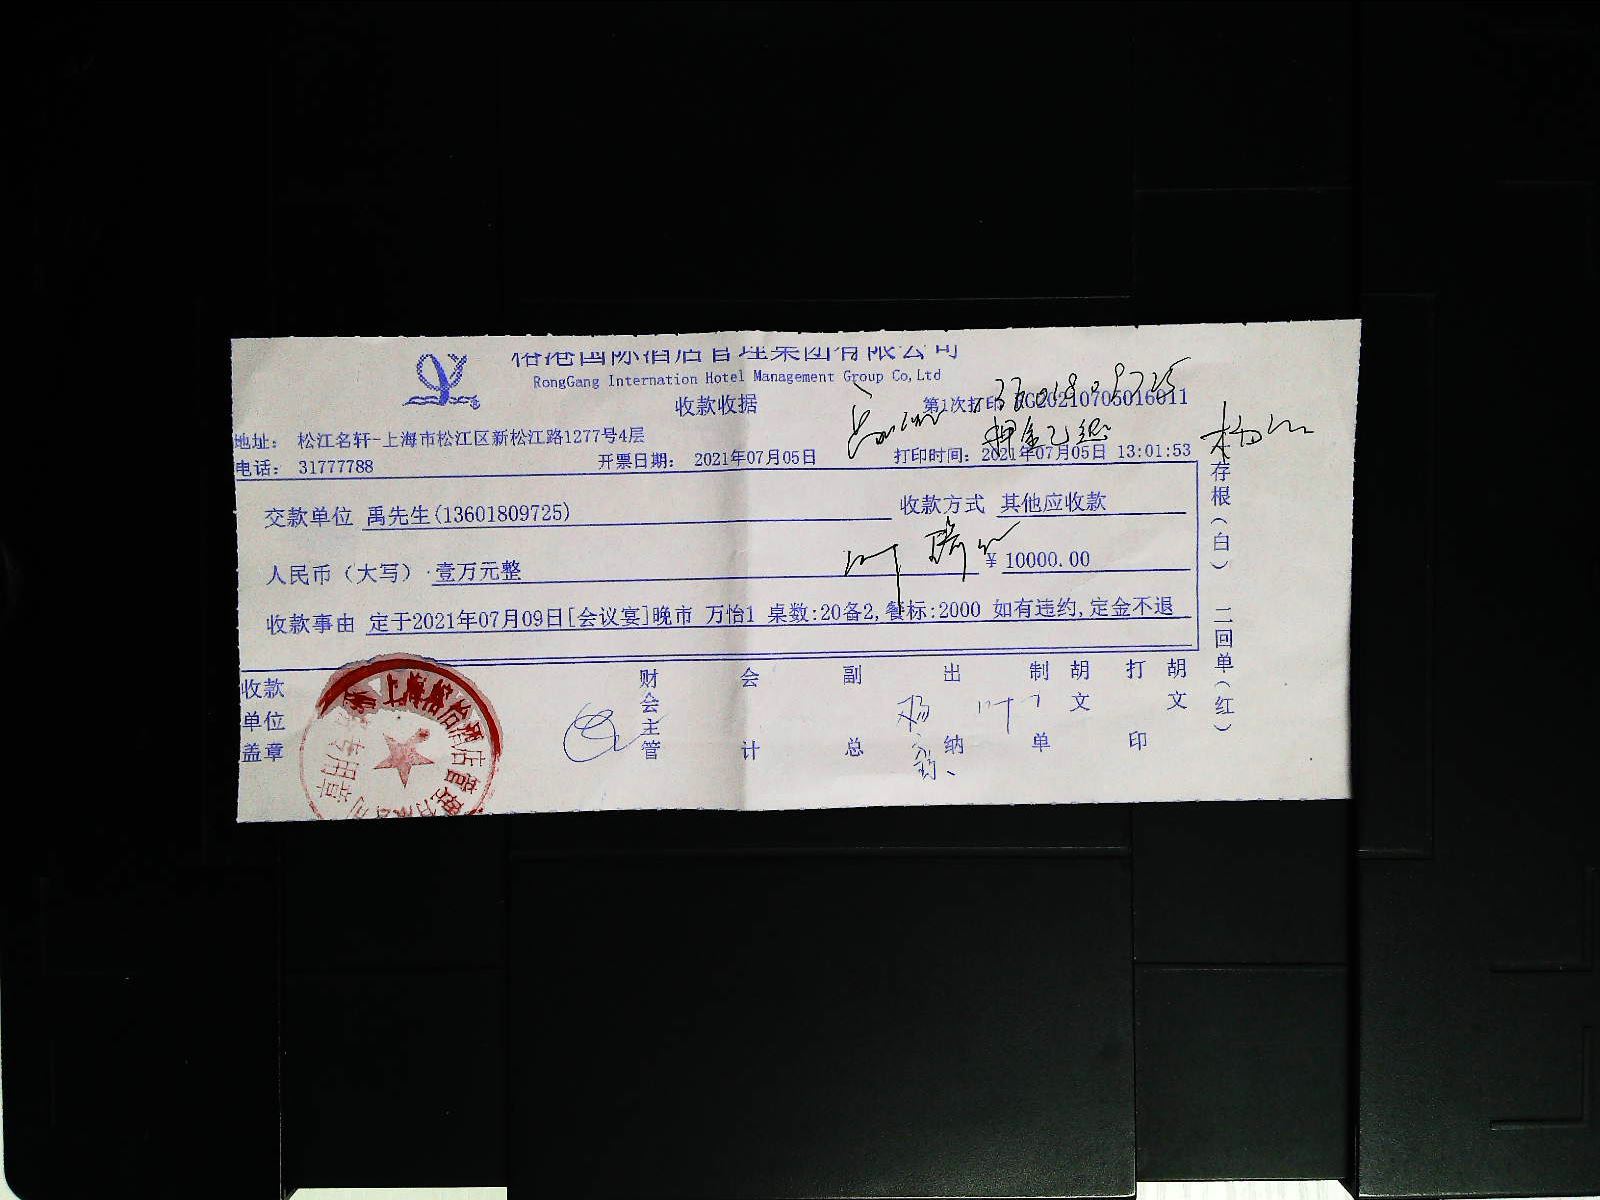 国际酒店管理集团有限公司
RongGang Internation Hotel Management Group Co,Ltd
收款收据
第1次打印 20210705016011
地址： 松江名轩-上海市松江区新松江路1277号4层
电话： 31777788
开票日期： 2021年07月05日
打印时间：2021年07月05日 13:01:53
交款单位 禹先生(13601809725)
收款方式 其他应收款
人民币（大写） 壹万元整
¥ 10000.00
收款事由 定于2021年07月09日[会议宴]晚市 万怡1 桌数:20备2,餐标:2000 如有违约,定金不退
收款单位盖章
财会主管
会计
副总
出纳
制单
胡文
打印
胡文
存根（白） 二回单（红）